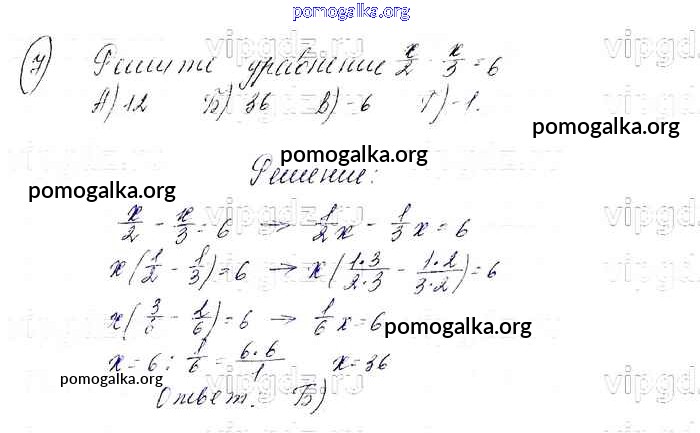 pomogalka.org
7) Решите уравнение x/2 - x/3 = 6
А) 12 Б) 36 В) -6 Г) -1.
pomogalka.org
pomogalka.org
Решение:
pomogalka.org
x/2 - x/3 = 6 → 1/2 x - 1/3 x = 6
x(1/2 - 1/3) = 6 → x(1·3/2·3 - 1·2/3·2) = 6
x(3/6 - 2/6) = 6 → 1/6 x = 6
pomogalka.org
x = 6 : 1/6 = 6·6/1 x = 36
pomogalka.org
Ответ. Б)